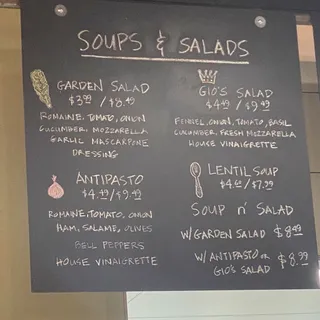 SOUPS & SALADS
GARDEN SALAD
$3.99 / $8.49
ROMAINE, TOMATO, ONION
CUCUMBER, MOZZARELLA
GARLIC MASCARPONE
DRESSING
ANTIPASTO
$4.49/$9.49
ROMAINE, TOMATO, ONION
HAM, SALAME, OLIVES
BELL PEPPERS
HOUSE VINAIGRETTE
GIO'S SALAD
$4.49 / $9.49
FENNEL, ONION, TOMATO, BASIL
CUCUMBER, FRESH MOZZARELLA
HOUSE VINAIGRETTE
LENTIL SOUP
SOUP n' SALAD
W/ GARDEN SALAD $8.49
W/ ANTIPASTO OR $8.99
GIO'S SALAD